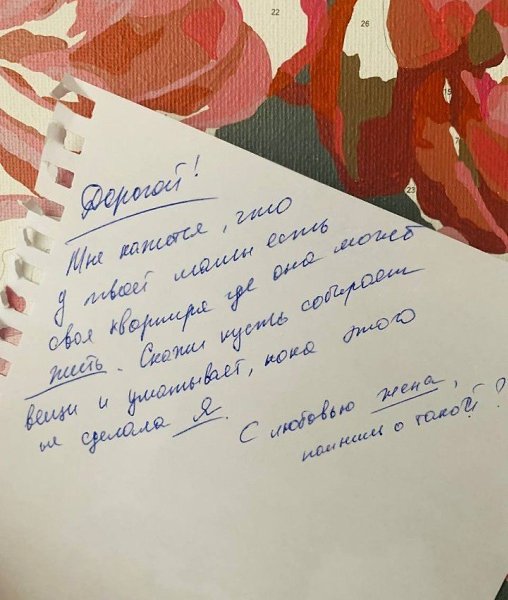 22
26
15
7
23
Дорогой!
Мне кажется, что
у твоей мамы есть
своя квартира где она может
жить. Скажи пусть собирает
вещи и уматывает, пока этого
не сделала Я.
С любовью жена,
помнишь о такой!?